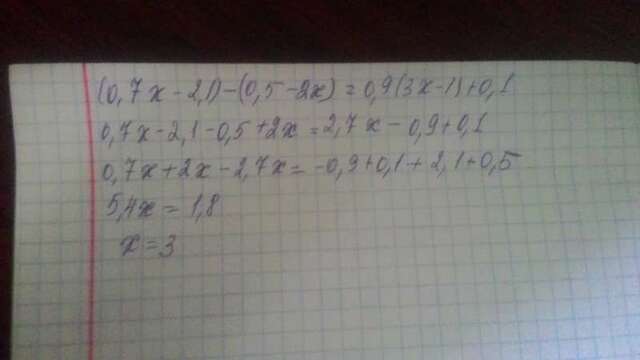 (0,7x-2,1)-(0,5-2x)=0,9(3x-1)+0,1
0,7x-2,1-0,5+2x=2,7x-0,9+0,1
0,7x+2x-2,7x=-0,9+0,1+2,1+0,5
5,4x=1,8
x=3